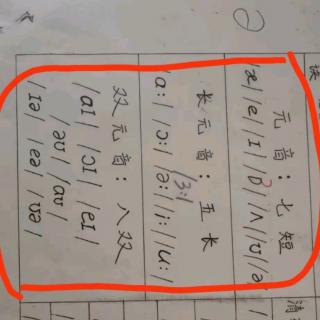 元音：七短
/æ/ /e/ /ɪ/ /ɒ/ /ʌ/ /ʊ/ /ə/
长元音：五长
/ɑː/ /ɔː/ /əː/ /iː/ /uː/
/ɜː/
双元音：八双
/aɪ/ /ɔɪ/ /eɪ/
/əʊ/ /aʊ/
/ɪə/ /eə/ /ʊə/
清